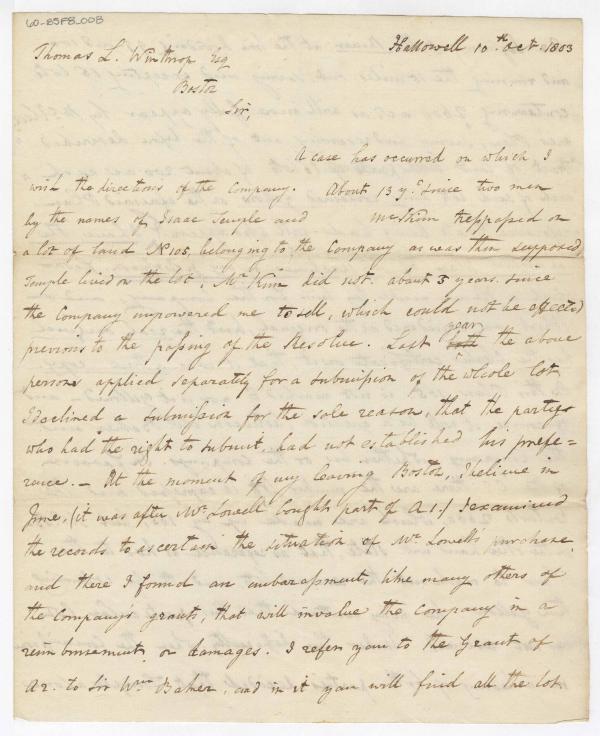 60-85F8_008
Hallowell 10th Oct. 1803
Thomas L. Winthrop Esq
Boston
Sir,
A case has occurred on which I
wish the directions of the Company. About 13 yrs since two men
by the names of Isaac Temple and McKim trespassed on
a lot of land No 105, belonging to the Company as was then supposed,
Temple lived on the lot, McKim did not. about 5 years since
the Company impowered me to sell, which could not be effected
previous to the passing of the Resolve. Last year the above
persons applied separately for a submission of the whole lot
I declined a submission for the sole reason, that the party
who had the right to submit, had not established his prefe-
rence. - At the moment of my leaving Boston, I believe in
June, (it was after Mr Lowell bought part of A 1.) I examined
the records to ascertain the situation of Mr Lowell's purchase,
and there I found an embarassment, like many others of
the Company's grants, that will involve the Company in a
reimbursement or damages. I refer you to the Grant of
A2. to Sir Wm Baker, and in it you will find all the lot